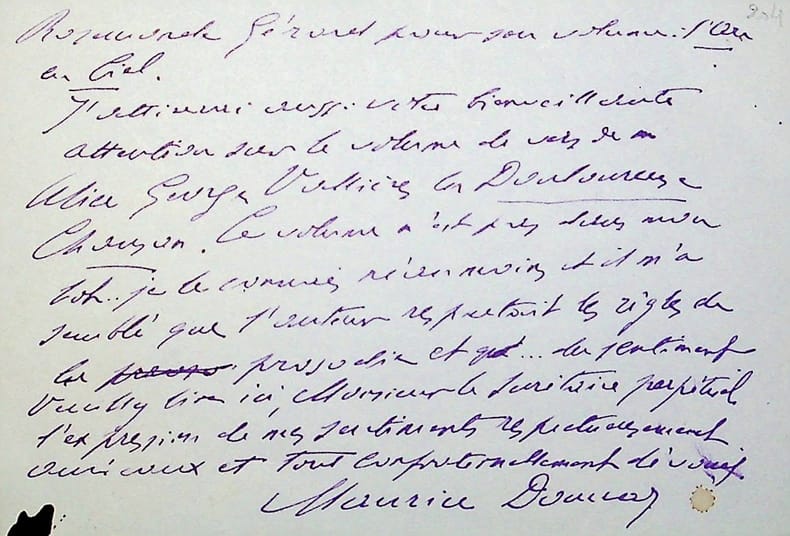 204
Rosemonde Gérard pour son volume : l'Arc
en Ciel.
J'attirerai aussi votre bienveillante
attention sur le volume de vers de M
Alice George Vallières la Douloureuse
Chanson. Ce volume n'est pas dans mon
lot.. je le connais néanmoins et il m'a
semblé que l'auteur respectait les règles de
la prosodie et qd ... du sentiment
Veuillez lire ici Monsieur le Secrétaire perpétuel
l'expression de mes sentiments respectueusement
amicaux et tout confraternellement dévoués
Maurice Donnay